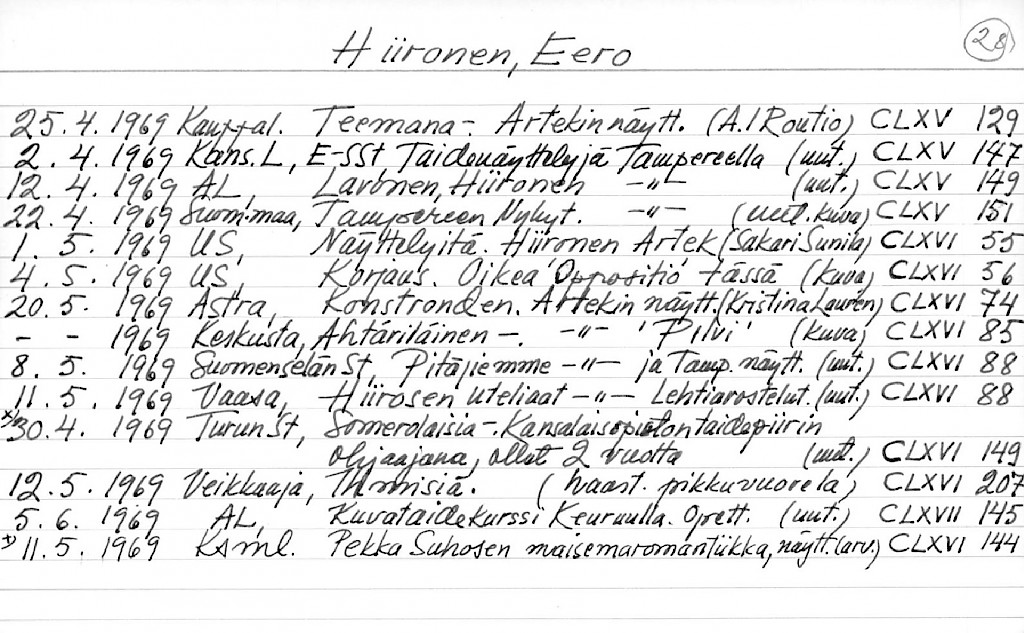 Hiironen, Eero 28)
25.4. 1969 Kauppal. Teemana-. Artekin näytt. (A. I Routio) CLXV 129
2. 4. 1969 Kans. L, E-SSt Taidenäyttelyjä Tampereella (uut.) CLXV 147
12. 4. 1969 AL, Lavonen, Hiironen -"- (uut.) CLXV 149
22. 4. 1969 Suom.maa, Tampereen Nykyt. -"- (uut. kuva) CLXV 151
1. 5. 1969 US, Näyttelyitä. Hiironen Artek (Sakari Sunila) CLXVI 55
4. 5. 1969 US, Korjaus. Oikea 'Oppositio' tässä (kuva) CLXVI 56
20. 5. 1969 Astra, Konstronden. Artekin näytt. (Kristina Lauren) CLXVI 74
- - 1969 Keskusta, Ähtäriläinen -. -"- 'Pilvi' (kuva) CLXVI 85
8. 5. 1969 Suomenselän St, Pitäjiemme -"- ja Tamp. näytt. (uut.) CLXVI 88
11. 5. 1969 Vaasa, Hiirosen uteliaat -"- Lehtiarostelut. (uut.) CLXVI 88
x) 30.4. 1969 Turun St, Somerolaisia -. Kansalaisopiston taidepiirin
ohjaajana, ollut 2 vuotta (uut.) CLXVI 149
12. 5. 1969 Veikkaaja, Ihmisiä. (haast. pikkuvuorela) CLXVI 207
5. 6. 1969 AL, Kuvataidekurssi Keuruulla. Opett. (uut.) CLXVII 145
x) 11.5. 1969 Ksml. Pekka Suhosen maisemaromantiikka, näytt. (arv.) CLXVI 144